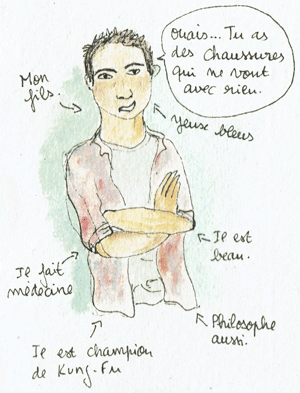 Ouais... Tu as
des chaussures
qui ne vont
avec rien.
Mon
fils.
Yeux bleus
Il est
beau.
Il fait
médecine
Philosophe
aussi.
Il est champion
de Kung-Fu